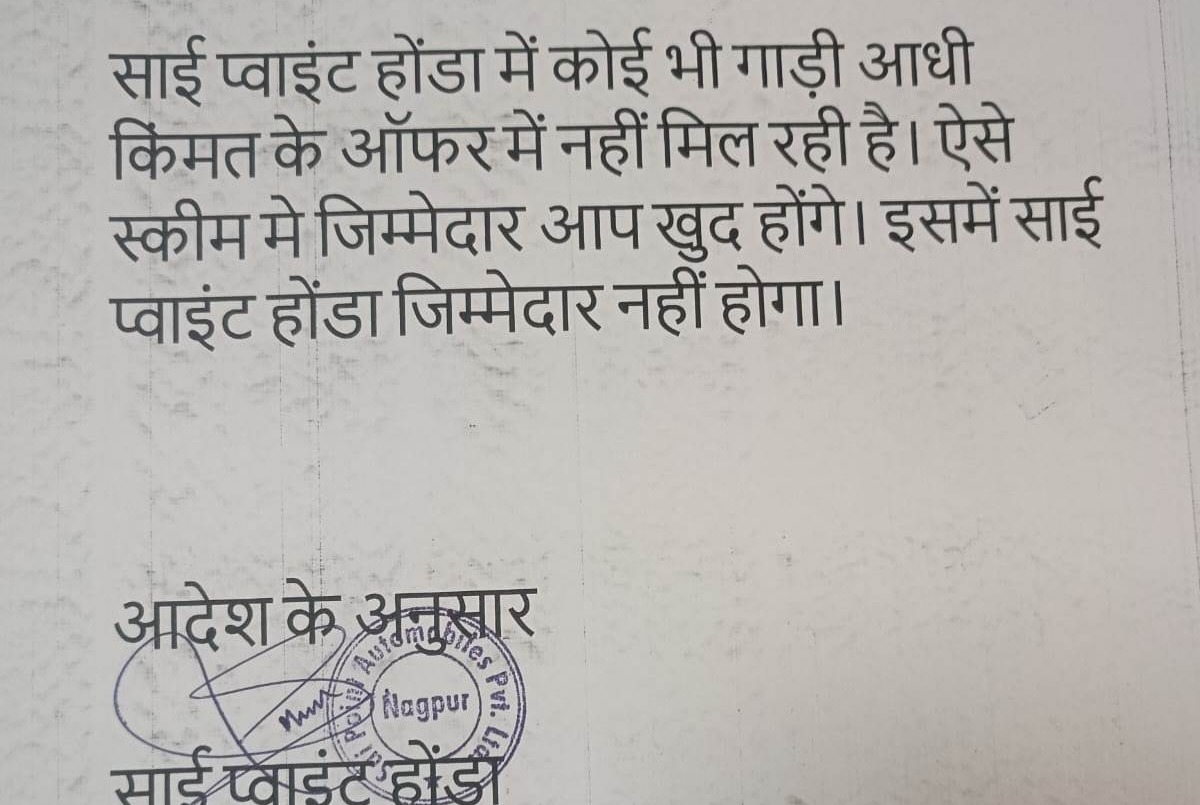 साई प्वाइंट होंडा में कोई भी गाड़ी आधी
किंमत के ऑफर में नहीं मिल रही है। ऐसे
स्कीम मे जिम्मेदार आप खुद होंगे। इसमें साई
प्वाइंट होंडा जिम्मेदार नहीं होगा।
आदेश के अनुसार
Sai Point Automobiles Pvt. Ltd.
Nagpur
साई प्वाइंट होंडा